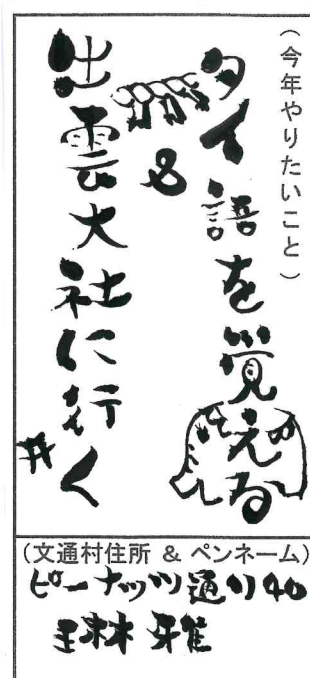 （今年やりたいこと）
タイ語を覚える
&
出雲大社に行く
（文通村住所 & ペンネーム）
ピーナッツ通り40
玉林 雅